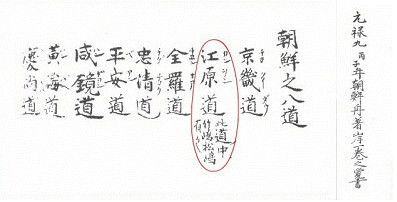 元禄九丙子年朝鮮舟着岸一巻之覚書
朝鮮之八道
京畿道
江原道
此道中
竹嶋松嶋
有之
全羅道
忠清道
平安道
咸鏡道
黄海道
慶尚道